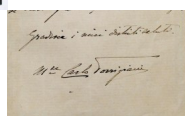 Gradisca i miei distinti saluti.
Carlo Torrigiani